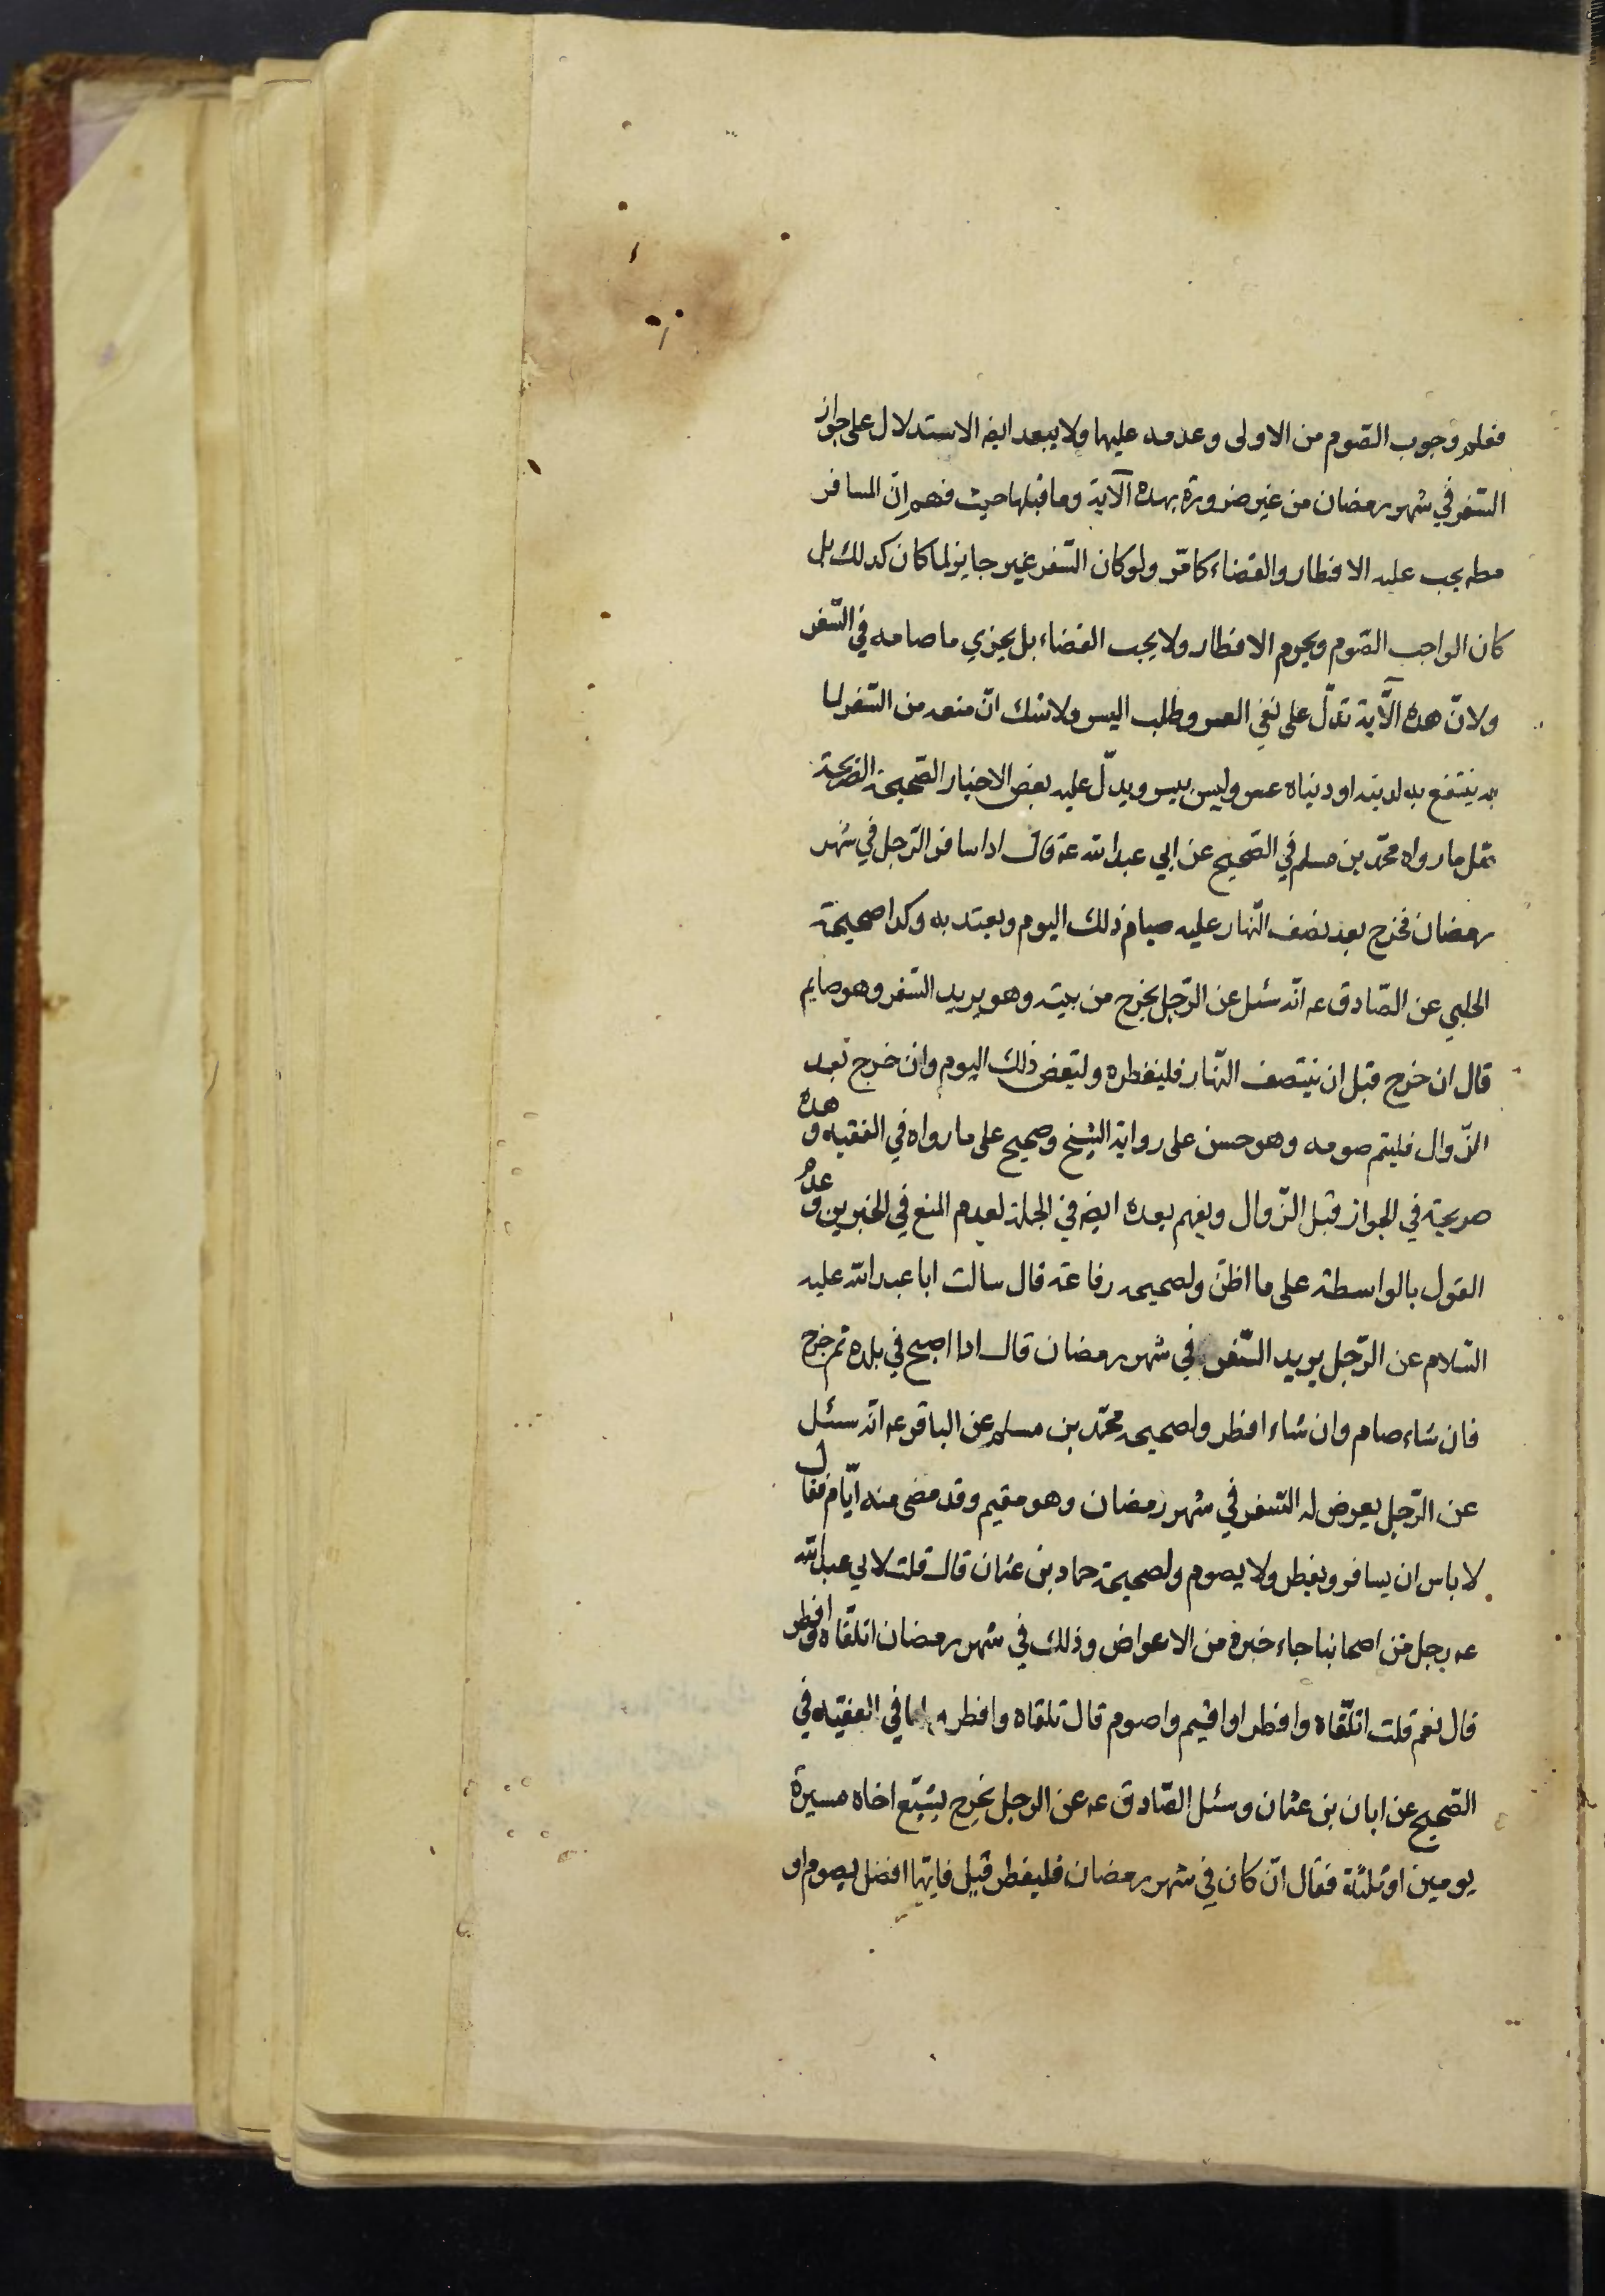 فعلم وجوب الصّوم من الاولى وعدمه عليها ولا يبعد ايضا الاستدلال على جواز
السّفر في شهر رمضان من غير ضرورة بهذه الآية وما قبلها حيث فهم انّ المسافر
مطلقا يجب عليه الافطار والقضاء كما مرّ ولو كان السّفر غير جايز لما كان كذلك بل
كان الواجب الصّوم ويحرم الافطار ولا يجب القضاء بل يجزي ما صامه في السّفر
ولانّ هذه الآية تدلّ على نفي العسر وطلب اليسر ولا شك انّ منعه من السّفر لما
به ينتفع به لدينه او دنياه عسر وليس بيسر ويدلّ عليه بعض الاخبار الصّحيحة الصّريحة
مثل ما رواه محمّد بن مسلم في الصّحيح عن ابي عبد الله عه قال اذا سافر الرّجل في شهر
رمضان فخرج بعد نصف النّهار عليه صيام ذلك اليوم ويعتد به وكذا صحيحة
الحلبي عن الصّادق عه انّه سئل عن الرّجل يخرج من بيته وهو يريد السّفر وهو صايم
قال ان خرج قبل ان ينتصف النّهار فليفطره وليقض ذلك اليوم وان خرج بعد
الزّوال فليتم صومه وهو حسن على رواية الشيخ وصحيح على ما رواه في الفقيه وهذه
صريحة في الجواز قبل الزّوال ويفهم بعده ايضا في الجملة لعدم المنع في الخبرين وعدم
القول بالواسطة على ما اظنّ ولصحيحة رفاعة قال سالت ابا عبد الله عليه
السّلام عن الرّجل يريد السّفر في شهر رمضان قال اذا اصبح في بلده ثم خرج
فان شاء صام وان شاء افطر ولصحيحة محمّد بن مسلم عن الباقر عه انّه سئل
عن الرّجل يعرض له السّفر في شهر رمضان وهو مقيم وقد مضى منه ايّام فقال
لا باس ان يسافر ويفطر ولا يصوم ولصحيحة حماد بن عثمان قال قلت لابي عبد الله
عه رجل من اصحابنا جاء خبره من الاعواض وذلك في شهر رمضان اتلقّاه وافطر
قال نعم قلت اتلقّاه وافطر او اقيم واصوم قال تلقاه وافطر و لما في الفقيه في
الصّحيح عن ابان بن عثمان وسئل الصّادق عه عن الرجل يخرج يشيّع اخاه مسيرة
يومين او ثلثة فقال ان كان في شهر رمضان فليفطر قيل فايّها افضل يصوم او